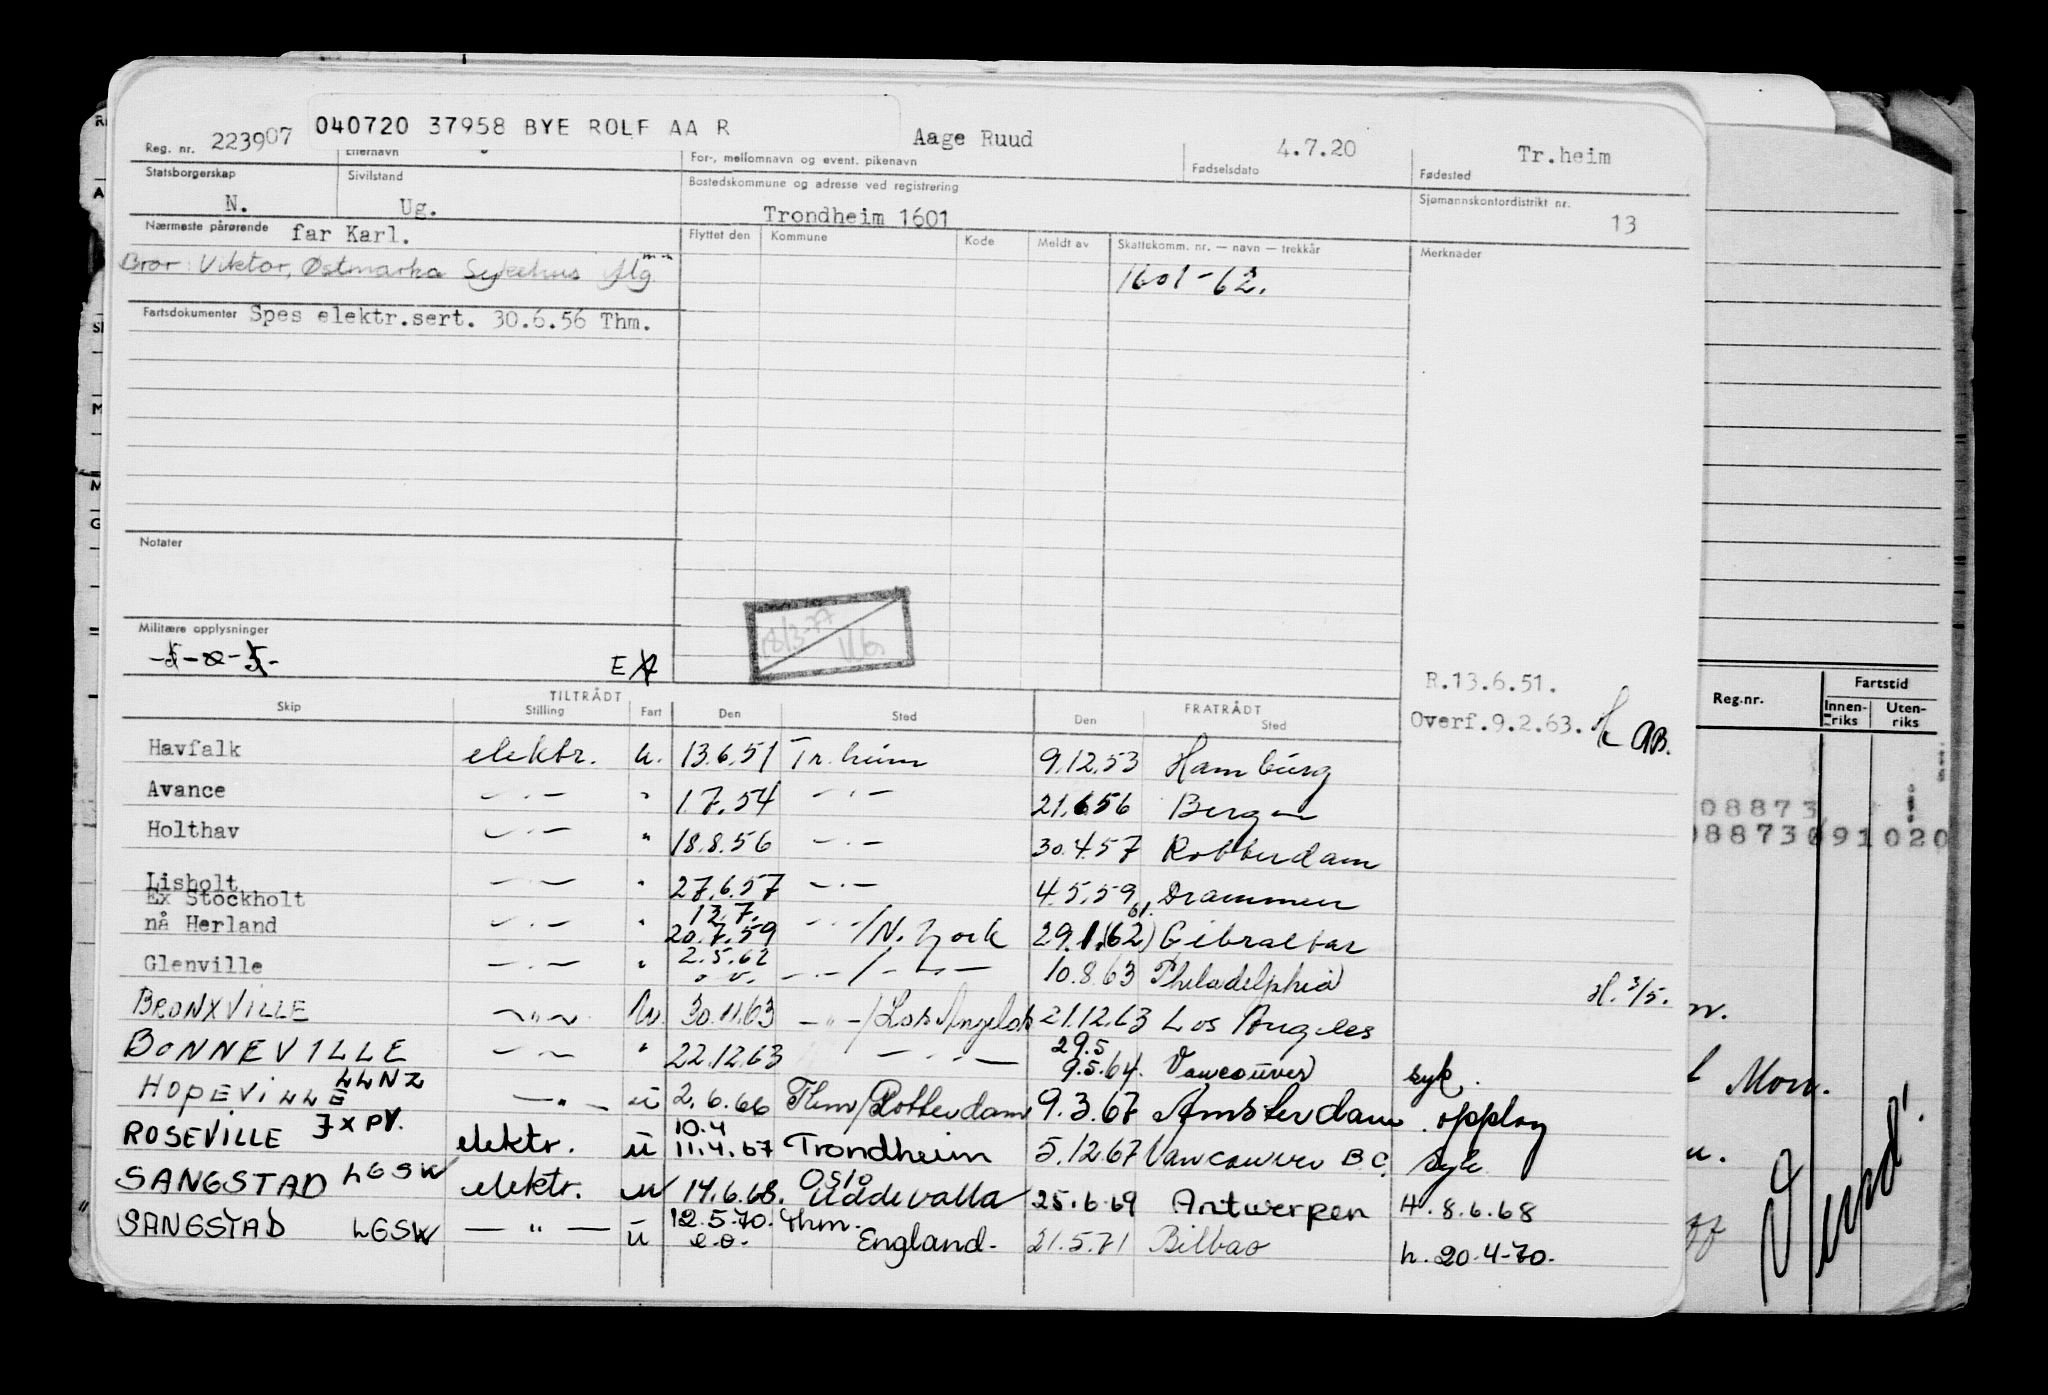 040720 37958 BYE ROLF AA R
Reg. nr. 223907
Etternavn
Aage Ruud
For-, mellomnavn og event. pikenavn
4.7.20
Fødselsdato
Tr.heim
Fødested
Statsborgerskap
N.
Sivilstand
Ug.
Bostedskommune og adresse ved registrering
Trondheim 1601
Sjømannskontordistrikt nr.
13
Nærmeste pårørende far Karl.
Bror: Viktor, Østmarka Sykehus
Flyttet den Kommune Kode Meldt av Skattekomm. nr. — navn — trekkår Merknader
1601-62.
Fartsdokumenter Spes elektr.sert. 30.6.56 Thm.
Notater
Militære opplysninger
R.13.6.51.
Overf.9.2.63. AB.
TILTRÅDT FRATRÅDT
Skip Stilling Fart Den Sted Den Sted
Havfalk elektr. u. 13.6.51 Tr.heim 9.12.53 Hamburg
Avance — " — " 1.7.54 — " — 21.6.56 Bergen
Holthav — " — " 18.8.56 — " — 30.4.57 Rotterdam
Lisholt — " — " 27.6.57 — " — 4.5.59 Drammen
Ex Stockholt
nå Herland — " — " 13.7. 20.7.59 — " — /N. York 29.1.(62) 61. Gibraltar
Glenville — " — " 2.5.62 — " — / — " — 10.8.63 Philadelphia H. 3/5.
BRONXVILLE — " — u. 30.11.63 — " — /Los Angelos 21.12.63 Los Angeles
BONNEVILLE — " — " 22.12.63 — " — 29.5 9.5.64. Vancouver syk.
HOPEVILLE LLNZ — " — u 2.6.66 Thm/Rotterdam 9.3.67 Amsterdam opplag
ROSEVILLE JXPV. elektr. u 10.4 11.4.67 Trondheim 5.12.67 Vancouver B C. syk
SANGSTAD LGSW elektr. u 14.6.68. Oslo Uddevalla 25.6.69 Antwerpen H. 8.6.68
SANGSTAD LGSW — " — u 12.5.70. e.o. Thm. England. 21.5.71 Bilbao h. 20.4-70.
Reg.nr.
Fartstid
Innen-
riks
Uten-
riks
08873
Mon.